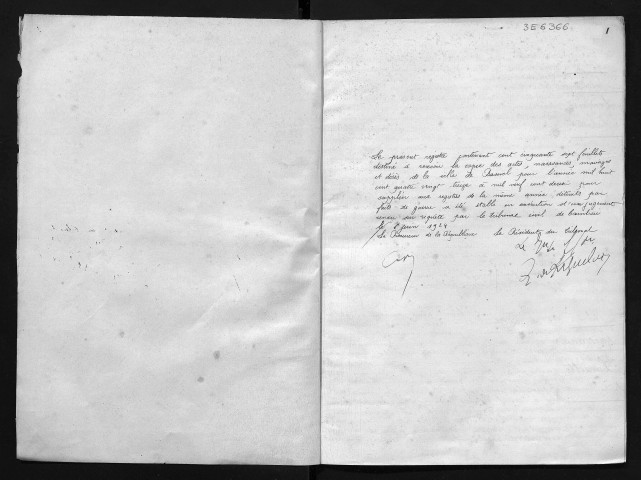 3E6366
1
Le présent registre contenant cent cinquante sept feuillets
destiné à recevoir la copie des actes, naissances, mariages
et décès de la ville de pour l'année mil huit
cent quatre vingt treize à mil neuf cent deux pour
suppléer aux registres de la même année détruits par
faits de guerre a été établi en exécution d'un jugement
rendu sur requête par le tribunal civil de Cambrai
le juin 1924
Le Procureur de la République Le Président du tribunal
Le Juge